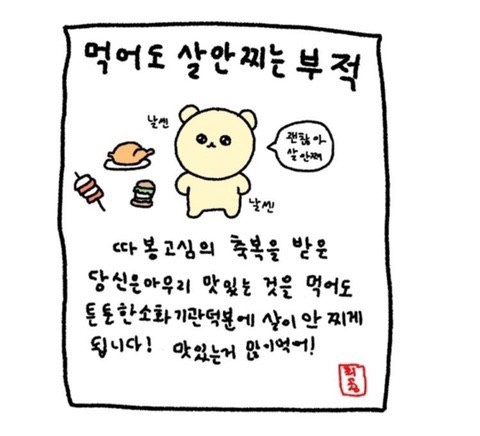 먹어도 살안찌는 부적
날씬
괜찮아
살안쪄
날씬
따봉고심의 축복을 받은
당신은아무리 맛있는 것을 먹어도
튼튼한소화기관덕분에 살이 안 찌게
됩니다! 맛있는거 많이먹어!